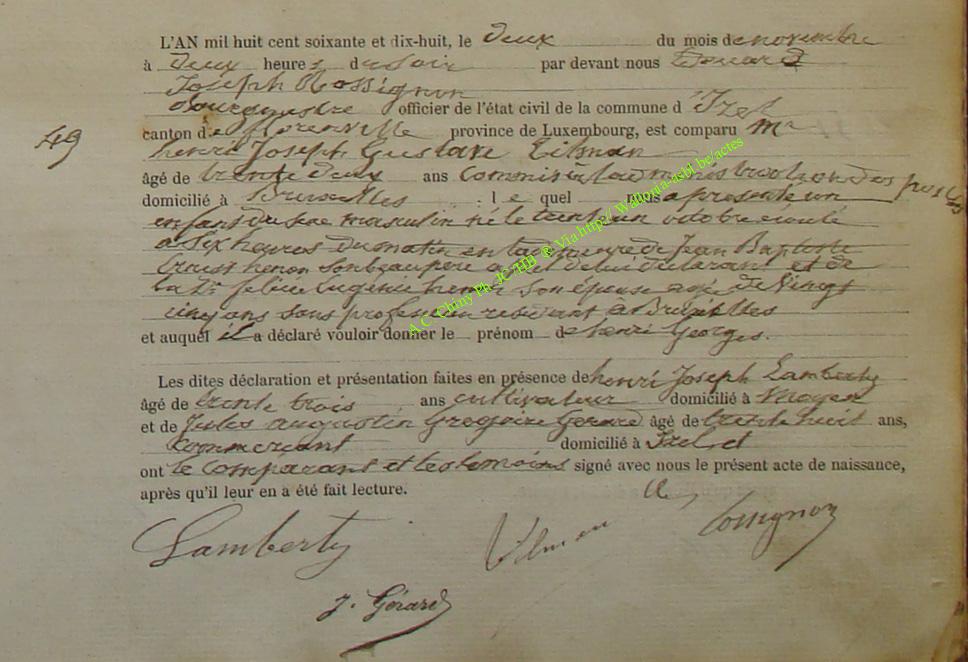 L'AN mil huit cent soixante et dix-huit, le deux du mois de novembre
à deux heures du soir par devant nous Edouard
Joseph Rossignon
Bourgmestre officier de l'état civil de la commune d'Izel
canton de florenville province de Luxembourg, est comparu Mr
49
henri Joseph Gustave
âgé de trente deux ans Commis des postes
domicilié à Bruxelles : le quel nous a presenté un
enfant du sexe masculin né le trente un octobre ecoulé
a six heures du matin en la demeure de Jean Baptiste
henon son beau pere de lui declarant et de
la De felicie Eugénie henon son épouse agé de Vingt
cinq ans sans profession residant à Bruxelles
et auquel il a déclaré vouloir donner le prénom de henri Georges.
A C Chiny Ph JC HB ® Via http:// Wallonia-asbl.be/actes
Les dites déclaration et présentation faites en présence de henri Joseph Lamberty
âgé de trente trois ans cultivateur domicilié à Moyen
et de Jules augustin Gregoire Gerard âgé de trente huit ans,
Commercant domicilié à Izel et
ont le Comparant et les temoins signé avec nous le présent acte de naissance,
après qu'il leur en a été fait lecture.
Lamberty Rossignon
J. Gérard